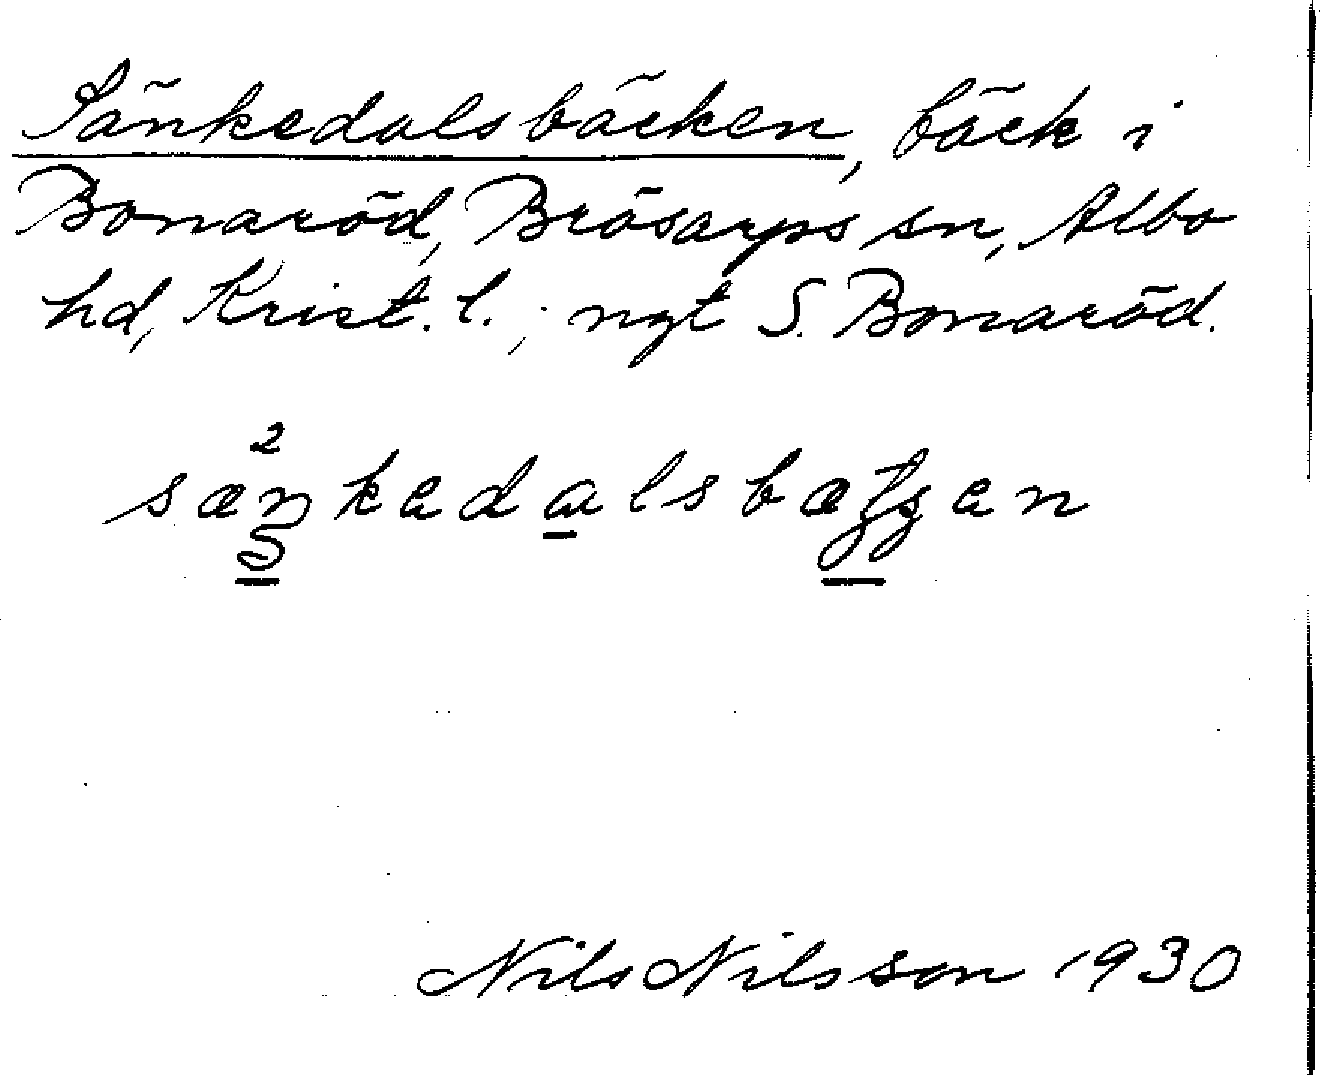 Sänkedalsbäcken, bäck i
Bonaröd, Brösarps sn, Albo
hd, Krist. l.; ngt S. Bonaröd.
2
Nils Nilsson 1930